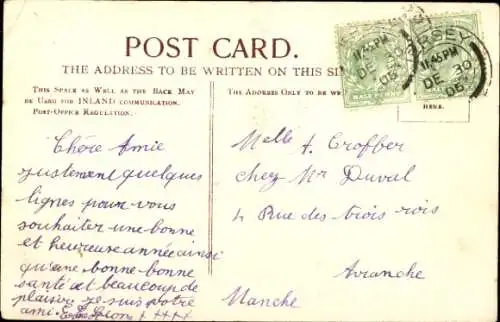 POST CARD.
THE ADDRESS TO BE WRITTEN ON THIS SI
THIS SPACE AS WELL AS THE BACK MAY
BE USED FOR INLAND COMMUNICATION.
POST-OFFICE REGULATION.
THE ADDRESS ONLY TO BE WR
HERE.
JERSEY
11.45 PM
DE 30
05
Chère Amie
justement quelques
lignes pour vous
souhaiter une bonne
et heureuse année ainsi
qu'une bonne bonne
santé et beaucoup de
plaisir je suis votre
ami. ++++
Melle A. Croffer
chez Mr Duval
4 Rue des trois rois
Avranche
Manche